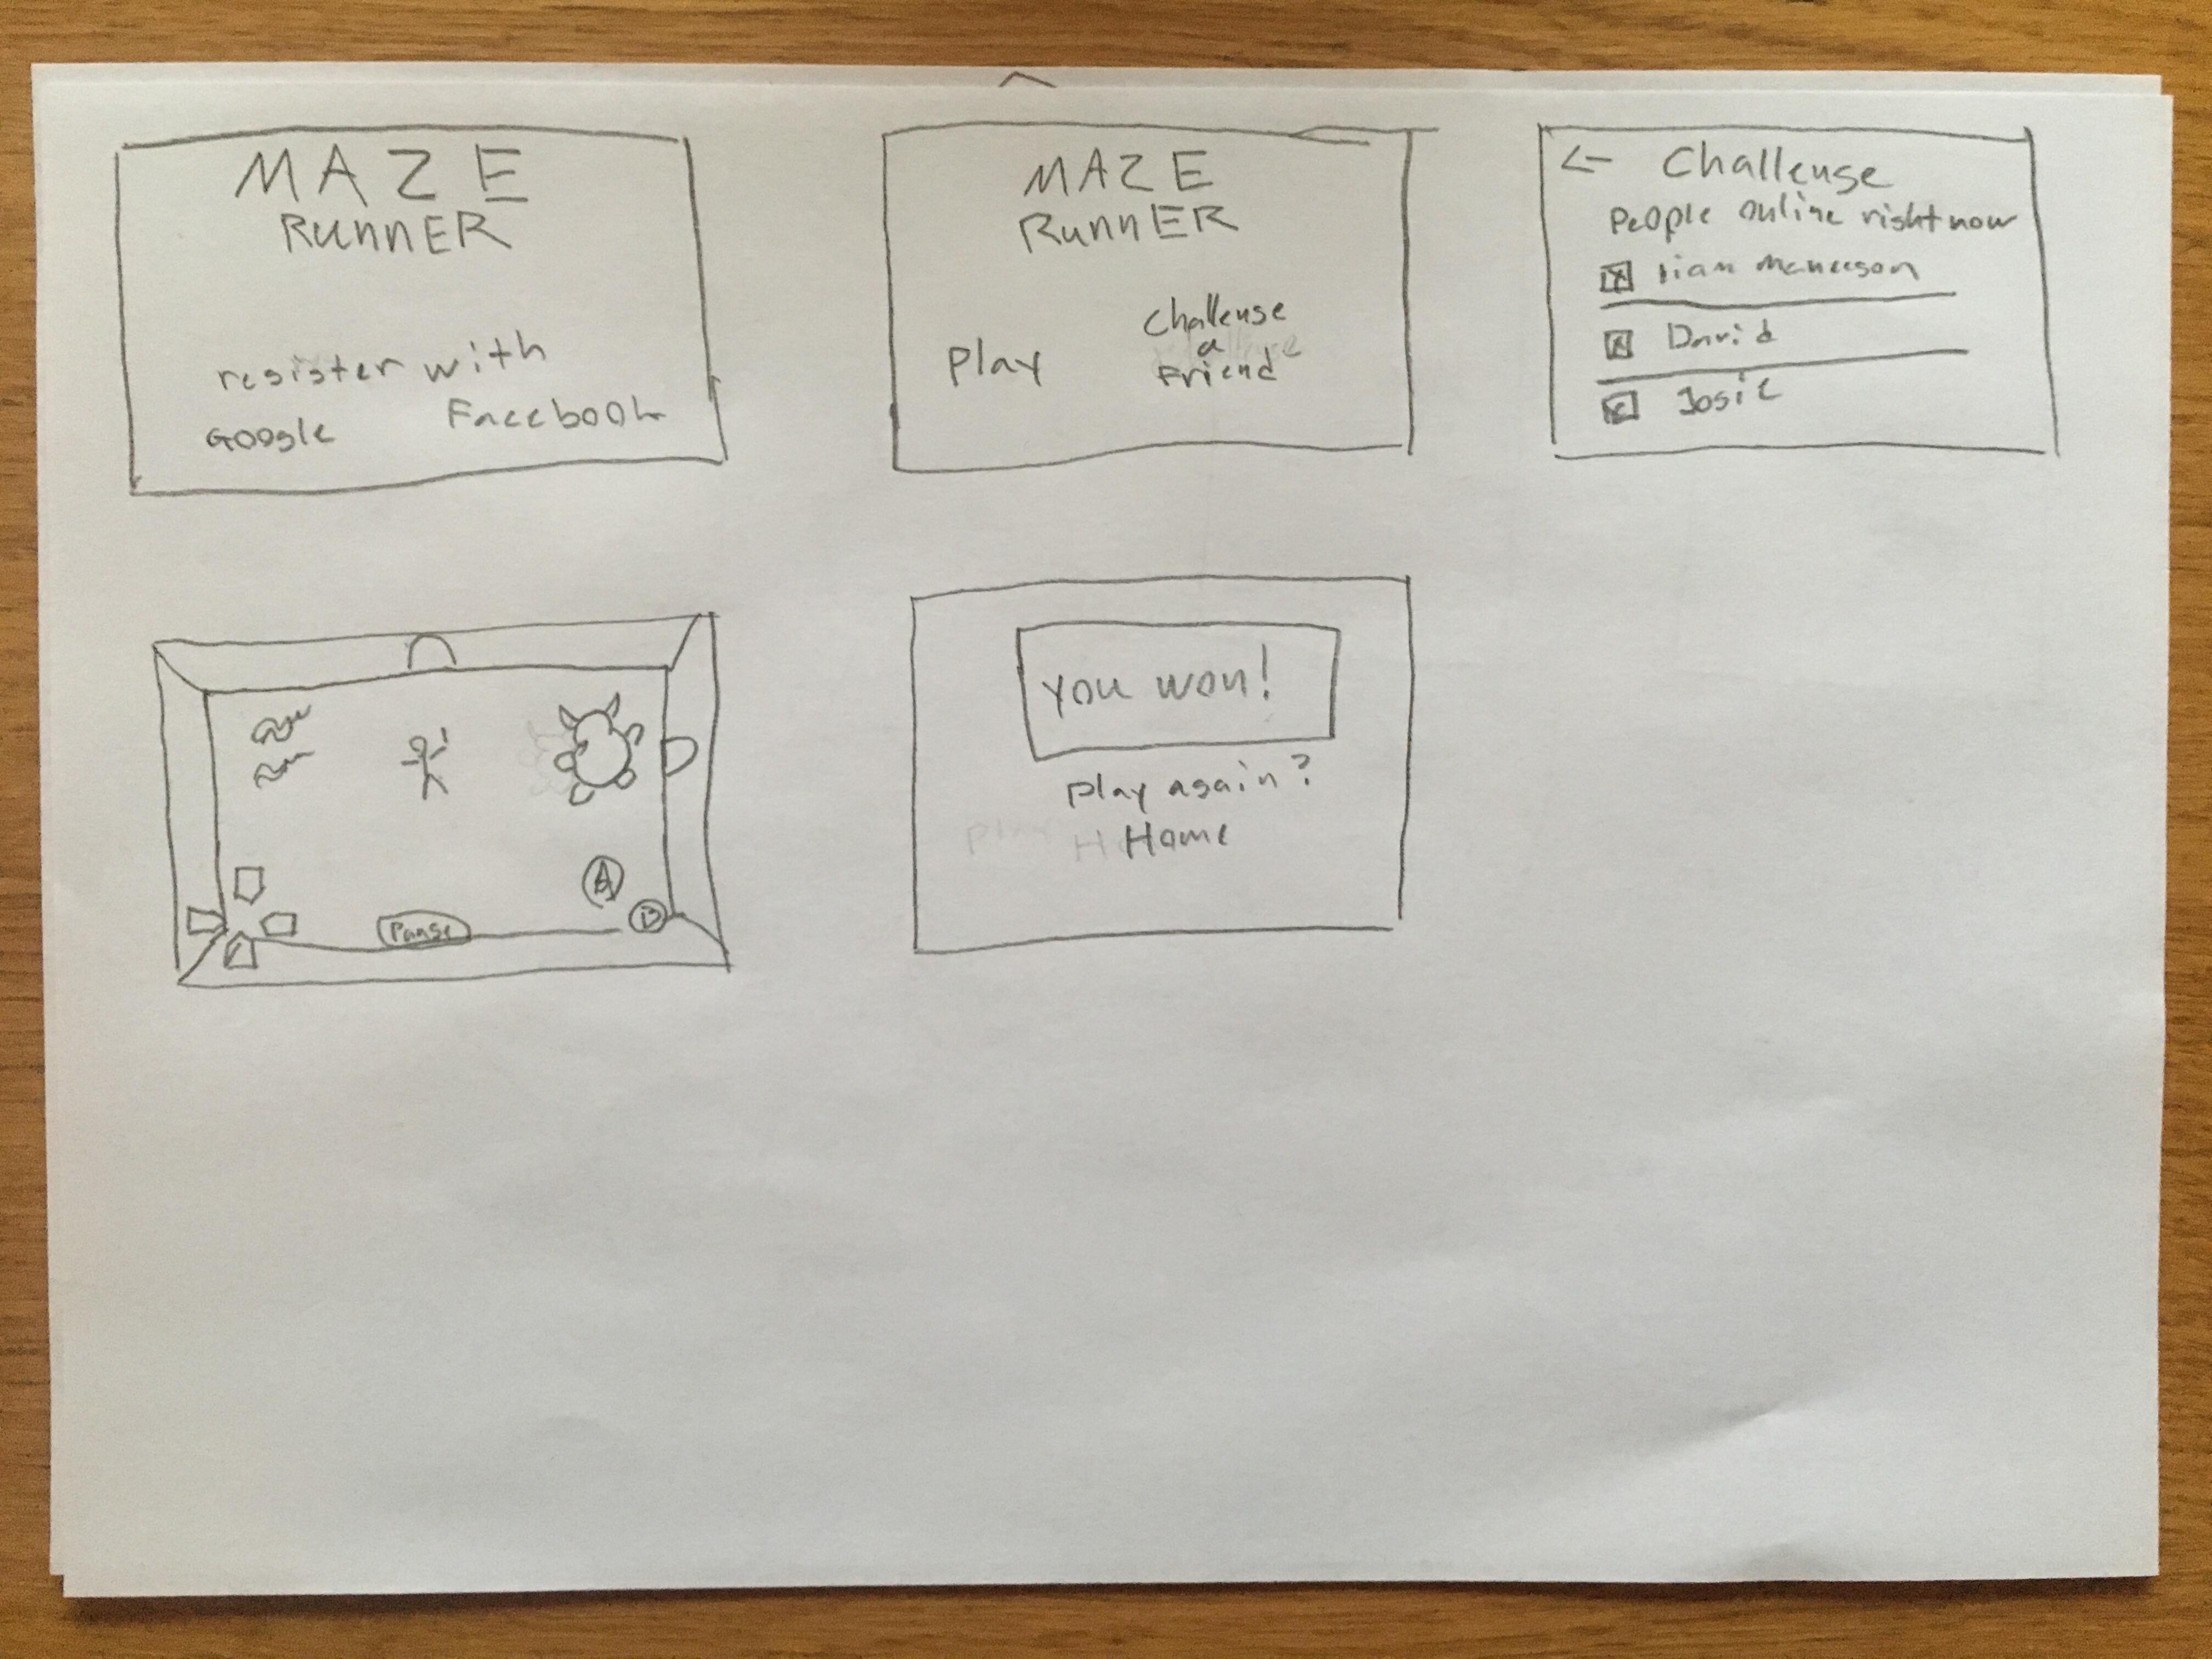 MAZE
RunnER
register with
Google
Facebook
MAZE
RunnER
Play
Challenge
a
Friend
Challenge
People online right now
David
Josie
Pause
A
B
you won!
Play again?
Home